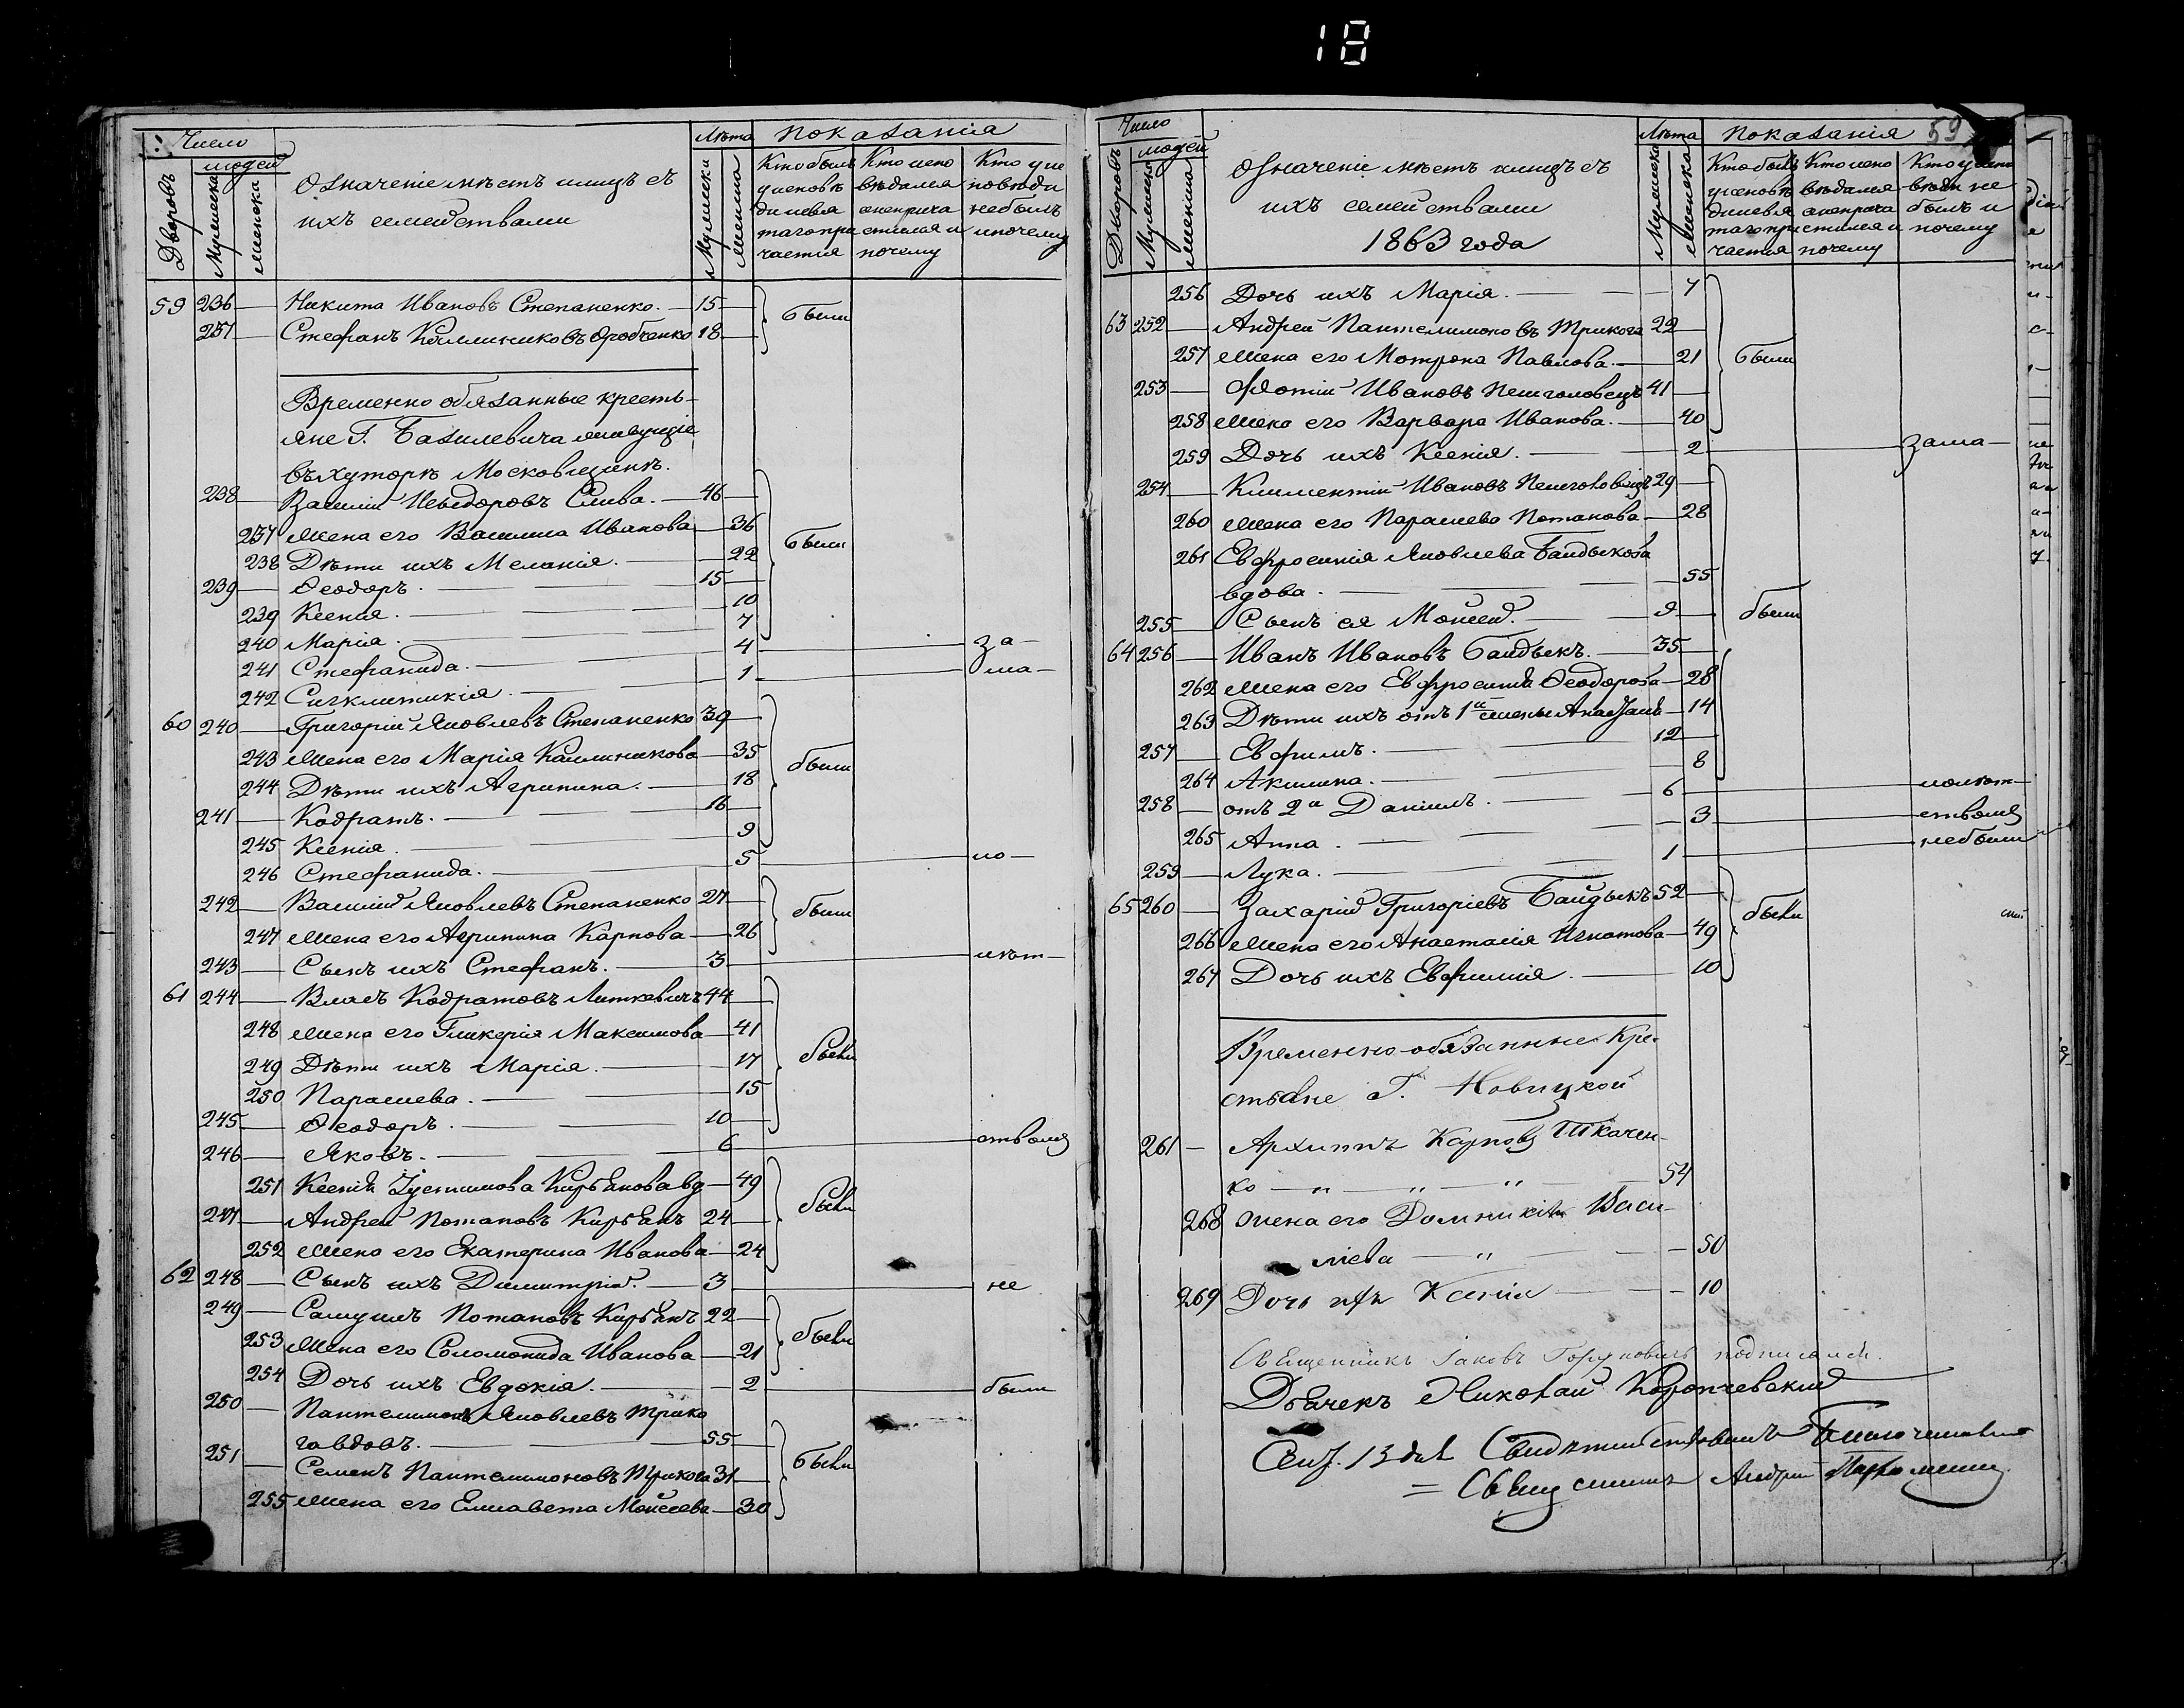 18
Число
людей
Дворовъ
Мужеска
женска
Означеніе мѣстъ и лицъ съ
ихъ семействами
Лѣта
Мужески
женска
Показанія
Кто былъ
у исповѣ
ди и свя
таго при
частія
Кто испо
вѣдался
а не прича
стился и
почему
Кто у ис
повѣди
не былъ
и почему
59 236 — Никита Ивановъ Степаненко. — 15 —
237 — Стефанъ Каллиниковъ 18 —
были
Временно обязанные кресть-
яне Г. Базилевича живущіе
въ хуторѣ Московщинѣ.
238 — Василій Слива. — 46 —
237 жена его Василиса Иванова — 36
238 Дѣти ихъ Меланія. — 22
239 — Ѳеодоръ. — 15 —
239 Ксенія. — 10
240 Марія. — 7
были
241 Стефанида. — 4 — за —
242 Сигклитикія. — 1 — ма —
60 240 — Григорій Яковлевъ Степаненко 39 —
243 жена его Марія Каллиникова — 35
244 Дѣти ихъ Агрипина. — 18
241 — Кодратъ. — 16 —
245 Ксенія. — 9
были
246 Стефанида. — 5 — ло —
242 — Василій Яковлевъ Степаненко 27 —
247 жена его Агрипина Карпова — 26
были
243 — Сынъ ихъ Стефанъ. — 3 — лѣт —
61 244 — Власъ Кодратовъ Литкевичъ 44 —
248 жена его Гликерія Максимова — 41
249 Дѣти ихъ Марія. — 17
250 Параскева. — 15
245 — Ѳеодоръ. — 10 —
были
246 — Яковъ. — 6 — ством
251 Ксенія Іустинова Кирьянова вд — 49
247 — Андрей Потаповъ Кирьянъ 24 —
252 жена его Екатерина Иванова — 24
были
62 248 — Сынъ ихъ Димитрій. — 3 — не
249 — Самуилъ Потаповъ Кирьянъ 22 —
253 жена его Соломонида Иванова — 21
были
254 Дочь ихъ Евдокія. — 2 — были
250 — Пантелимонъ Яковлевъ Трико
га вдовъ. — 55 —
251 — Семенъ Пантелимоновъ Трикога 31 —
255 жена его Елисавета Моисеева — 30
были
Число
людей
Дворовъ
Мужеска
женска
Означеніе мѣстъ и лицъ съ
ихъ семействами
1863 года
Лѣта
Мужеска
женска
Показанія 59
Кто былъ
у исповѣ
ди и свя
таго при
частія
Кто испо
вѣдался
а не прича
стился и
почему
Кто у испо
вѣди не
былъ и
почему
256 Дочь ихъ Марія. — 7
63 252 — Андрей Пантелимоновъ Трикога 22 —
257 жена его Мотрона Павлова. — 21
253 — Фотій Ивановъ 41 —
258 жена его Варвара Иванова. — 40
были
259 Дочь ихъ Ксенія. — 2 — за ма —
254 — Климентій Ивановъ 29 —
260 жена его Параскева Потапова — 28
261 Евфросинія Яковлева Байдыкова
вдова. — 55
255 — Сынъ ея Моисей. — 9 —
были
64 256 — Иванъ Ивановъ Байдыкъ. — 35 —
262 жена его Евфросинія Ѳеодорова — 28
263 Дѣти ихъ отъ 1й жены — 14
257 — Евфимъ. — 12 —
264 Акилина. — 8
258 — отъ 2й Даніилъ. — 6 — лолѣт —
265 Анна. — 3 — ством
259 — Лука. — 1 — не были
65 260 — Захарій Григоріевъ Байдыкъ 52 —
266 жена его Анастасія Игнатова — 49
267 Дочь ихъ Евфимія. — 10
были
Временно-обязанные кре-
стьяне Г. Новицкой
261 — Архиппъ Карповъ Ткачен-
ко — " — " — " — 54
268 жена его Домникія Васи-
ліева — " — 50
269 Дочь ихъ Ксенія — 10
Священникъ Іаковъ подписался.
Дьячекъ Николай Коропчевскій
13 дня Свидѣтельствовалъ Благочинный
= Священникъ Андрей